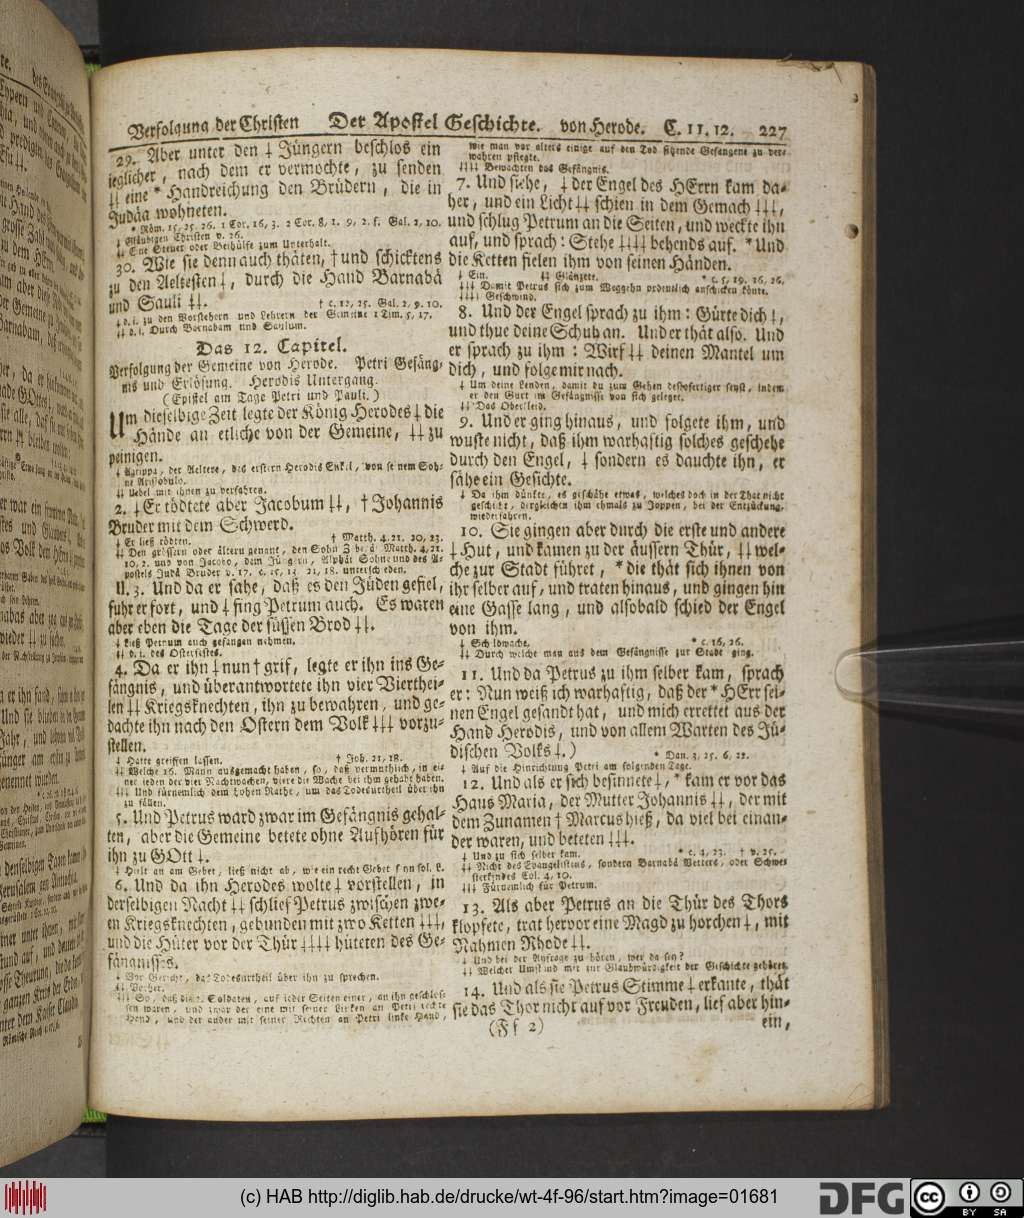 Verfolgung der Christen Der Apostel Geschichte. von Herode. C. 11. 12. 227
29. Aber unter den ‡ Jüngern beschlos ein
jeglicher, nach dem er vermochte, zu senden
‡‡ eine * Handreichung den Brüdern, die in
Judäa wohneten.
* Röm. 15, 25. 26. 1 Cor. 16, 3. 2 Cor. 8, 1. 9, 2. f. Gal. 2, 10.
‡ Gläubigen Christen v. 26.
‡‡ Eine Steuer oder Beihülfe zum Unterhalt.
30. Wie sie denn auch thäten, † und schicktens
zu den Aeltesten ‡, durch die Hand Barnabä
und Sauli ‡‡.
† c. 12, 25. Gal. 2, 9. 10.
‡ d. i. zu den Vorstehern und Lehrern der Gemeine 1 Tim. 5, 17.
‡‡ d. i. Durch Barnabam und Saulum.
Das 12. Capitel.
Verfolgung der Gemeine von Herode. Petri Gefäng-
nis und Erlösung. Herodis Untergang.
(Epistel am Tage Petri und Pauli.)
Um dieselbige Zeit legte der König Herodes ‡ die
Hände an etliche von der Gemeine, ‡‡ zu
peinigen.
‡ Agrippa, der Aeltere, des erstern Herodis Enkel, von seinem Soh-
ne Aristobulo.
‡‡ Uebel mit ihnen zu verfahren.
2. ‡ Er tödtete aber Jacobum ‡‡, † Johannis
Bruder mit dem Schwerd.
† Matth. 4, 21. 20, 23.
‡ Er ließ tödten.
‡‡ Den grössern oder ältern genant, den Sohn Zebedä Matth. 4, 21.
10, 2. und von Jacobo, dem Jüngern, Alphäi Sohne und des A-
postels Judä Bruder v. 17. c. 15, 13. 21, 18. unterschieden.
II. 3. Und da er sahe, daß es den Jüden gefiel,
fuhr er fort, und ‡ fing Petrum auch. Es waren
aber eben die Tage der süssen Brod ‡‡.
‡ Ließ Petrum auch gefangen nehmen.
‡‡ d. i. des Osterfestes.
4. Da er ihn ‡ nun † grif, legte er ihn ins Ge-
fängnis, und überantwortete ihn vier Vierthei-
len ‡‡ Kriegsknechten, ihn zu bewahren, und ge-
dachte ihn nach den Ostern dem Volk ‡‡‡ vorzu-
stellen.
‡ Hatte greiffen lassen. † Joh. 21, 18.
‡‡ Welche 16. Mann ausgemacht haben, so, daß vermuthlich, in ei-
ner jeden der vier Nachtwachen, viere die Wache bei ihm gehabt haben.
‡‡‡ Und fürnemlich dem hohen Rathe, um das Todesurtheil über ihn
zu fällen.
5. Und Petrus ward zwar im Gefängnis gehal-
ten, aber die Gemeine betete ohne Aufhören für
ihn zu GOtt ‡.
‡ Hielt an am Gebet, ließ nicht ab, wie ein recht Gebet seyn sol. L.
6. Und da ihn Herodes wolte ‡ vorstellen, in
derselbigen Nacht ‡‡ schlief Petrus zwischen zwe-
en Kriegsknechten, gebunden mit zwo Ketten ‡‡‡,
und die Hüter vor der Thür ‡‡‡‡ hüteten des Ge-
fängnisses.
‡ Vor Gericht, das Todesurtheil über ihn zu sprechen.
‡‡ Vorher.
‡‡‡ So, daß die 2. Soldaten, auf jeder Seiten einer, an ihn geschlos-
sen waren, und zwar der eine mit seiner Lincken an Petri rechte
Hand, und der ander mit seiner Rechten an Petri linke Hand,
wie man vor alters einige auf den Tod sitzende Gefangene zu ver-
wahren pflegte.
‡‡‡‡ Bewachten das Gefängnis.
7. Und siehe, ‡ der Engel des HErrn kam da-
her, und ein Licht ‡‡ schien in dem Gemach ‡‡‡,
und schlug Petrum an die Seiten, und weckte ihn
auf, und sprach: Stehe ‡‡‡‡ behends auf. * Und
die Ketten fielen ihm von seinen Händen.
‡ Ein. ‡‡ Glänzete. * c. 5, 19. 16, 26.
‡‡‡ Damit Petrus sich zum Weggehn ordentlich anschicken könte.
‡‡‡‡ Geschwind.
8. Und der Engel sprach zu ihm: Gürte dich ‡,
und thue deine Schuh an. Und er thät also. Und
er sprach zu ihm: Wirf ‡‡ deinen Mantel um
dich, und folge mir nach.
‡ Um deine Lenden, damit du zum Gehen destofertiger seyst, indem
er den Gurt im Gefängnisse von sich geleget.
‡‡ Das Oberkleid.
9. Und er ging hinaus, und folgete ihm, und
wuste nicht, daß ihm warhaftig solches geschehe
durch den Engel, ‡ sondern es dauchte ihn, er
sähe ein Gesichte.
‡ Da ihm dünkte, es geschähe etwas, welches doch in der That nicht
geschieht, dergleichen ihm ehmals zu Joppen, bei der Entzückung,
wiederfahren.
10. Sie gingen aber durch die erste und andere
‡ Hut, und kamen zu der äussern Thür, ‡‡ wel-
che zur Stadt führet, * die thät sich ihnen von
ihr selber auf, und traten hinaus, und gingen hin
eine Gasse lang, und alsobald schied der Engel
von ihm.
‡ Schildwache. * c. 16, 26.
‡‡ Durch welche man aus dem Gefängnisse zur Stadt ging.
11. Und da Petrus zu ihm selber kam, sprach
er: Nun weiß ich warhaftig, daß der * HErr sei-
nen Engel gesandt hat, und mich errettet aus der
Hand Herodis, und von allem Warten des Jü-
dischen Volks ‡.)
* Dan. 3, 25. 6, 22.
‡ Auf die Hinrichtung Petri am folgenden Tage.
12. Und als er sich besinnete ‡, * kam er vor das
Haus Maria, der Mutter Johannis ‡‡, der mit
dem Zunamen † Marcus hieß, da viel bei einan-
der waren, und beteten ‡‡‡.
‡ Und zu sich selber kam. * c. 4, 23. † v. 25.
‡‡ Nicht des Evangelistens, sondern Barnabä Vetters, oder Schwe-
sterkindes Col. 4, 10.
‡‡‡ Fürnemlich für Petrum.
13. Als aber Petrus an die Thür des Thors
klopfete, trat hervor eine Magd zu horchen ‡, mit
Nahmen Rhode ‡‡.
‡ Und bei der Anfrage zu hören, wer da sey?
‡‡ Welcher Umstand mit zur Glaubwürdigkeit der Geschichte gehöret.
14. Und als sie Petrus Stimme ‡ erkante, thät
sie das Thor nicht auf vor Freuden, lief aber hin-
(Ff 2) ein,
(c) HAB http://diglib.hab.de/drucke/wt-4f-96/start.htm?image=01681
DFG
cc BY SA